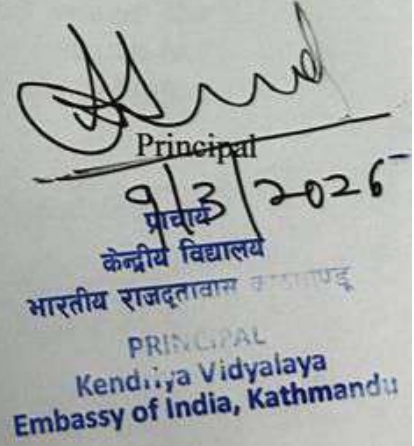 Principal
9/3/2026
प्राचार्य
केन्द्रीय विद्यालय
भारतीय राजदूतावास काठमाण्डू
PRINCIPAL
Kendriya Vidyalaya
Embassy of India, Kathmandu